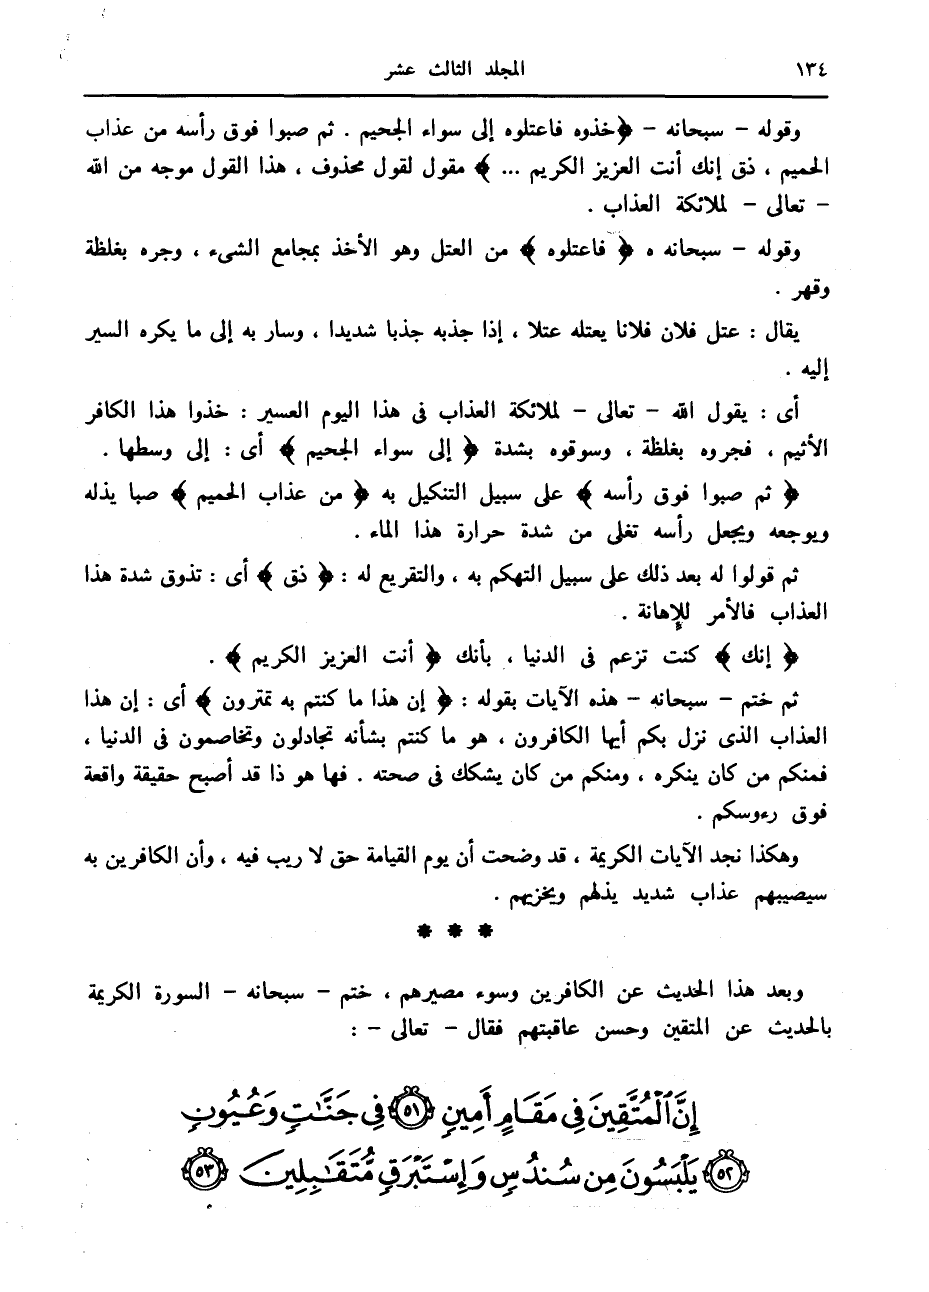 ١٣٤ المجلد الثالث عشر
وقوله – سبحانه – ﴿خذوه فاعتلوه إلى سواء الجحيم . ثم صبوا فوق رأسه من عذاب
الحميم ، ذق إنك أنت العزيز الكريم ... ﴾ مقول لقول محذوف ، هذا القول موجه من الله
– تعالى – لملائكة العذاب .
وقوله – سبحانه ه ﴿ فاعتلوه ﴾ من العتل وهو الأخذ بمجامع الشىء ، وجره بغلظة
وقهر .
يقال : عتل فلان فلانا يعتله عتلا ، إذا جذبه جذبا شديدا ، وسار به إلى ما يكره السير
إليه .
أى : يقول الله – تعالى – لملائكة العذاب فى هذا اليوم العسير : خذوا هذا الكافر
الأثيم ، فجروه بغلظة ، وسوقوه بشدة ﴿ إلى سواء الجحيم ﴾ أى : إلى وسطها .
﴿ ثم صبوا فوق رأسه ﴾ على سبيل التنكيل به ﴿ من عذاب الحميم ﴾ صبا يذله
ويوجعه ويجعل رأسه تغلى من شدة حرارة هذا الماء .
ثم قولوا له بعد ذلك على سبيل التهكم به ، والتقريع له : ﴿ ذق ﴾ أى : تذوق شدة هذا
العذاب فالأمر للإهانة .
﴿ إنك ﴾ كنت تزعم فى الدنيا ، بأنك ﴿ أنت العزيز الكريم ﴾ .
ثم ختم – سبحانه – هذه الآيات بقوله : ﴿ إن هذا ما كنتم به تمترون ﴾ أى : إن هذا
العذاب الذى نزل بكم أيها الكافرون ، هو ما كنتم بشأنه تجادلون وتخاصمون فى الدنيا ،
فمنكم من كان ينكره ، ومنكم من كان يشكك فى صحته . فها هو ذا قد أصبح حقيقة واقعة
فوق رءوسكم .
وهكذا نجد الآيات الكريمة ، قد وضحت أن يوم القيامة حق لا ريب فيه ، وأن الكافرين به
سيصيبهم عذاب شديد يذلهم ويخزيهم .
* * *
وبعد هذا الحديث عن الكافرين وسوء مصيرهم ، ختم – سبحانه – السورة الكريمة
بالحديث عن المتقين وحسن عاقبتهم فقال – تعالى – :
إِنَّ ٱلْمُتَّقِينَ فِي مَقَامٍ أَمِينٍ ٥١ فِي جَنَّٰتٍ وَعُيُونٍ
٥٢ يَلْبَسُونَ مِن سُندُسٍ وَإِسْتَبْرَقٍ مُّتَقَٰبِلِينَ ٥٣